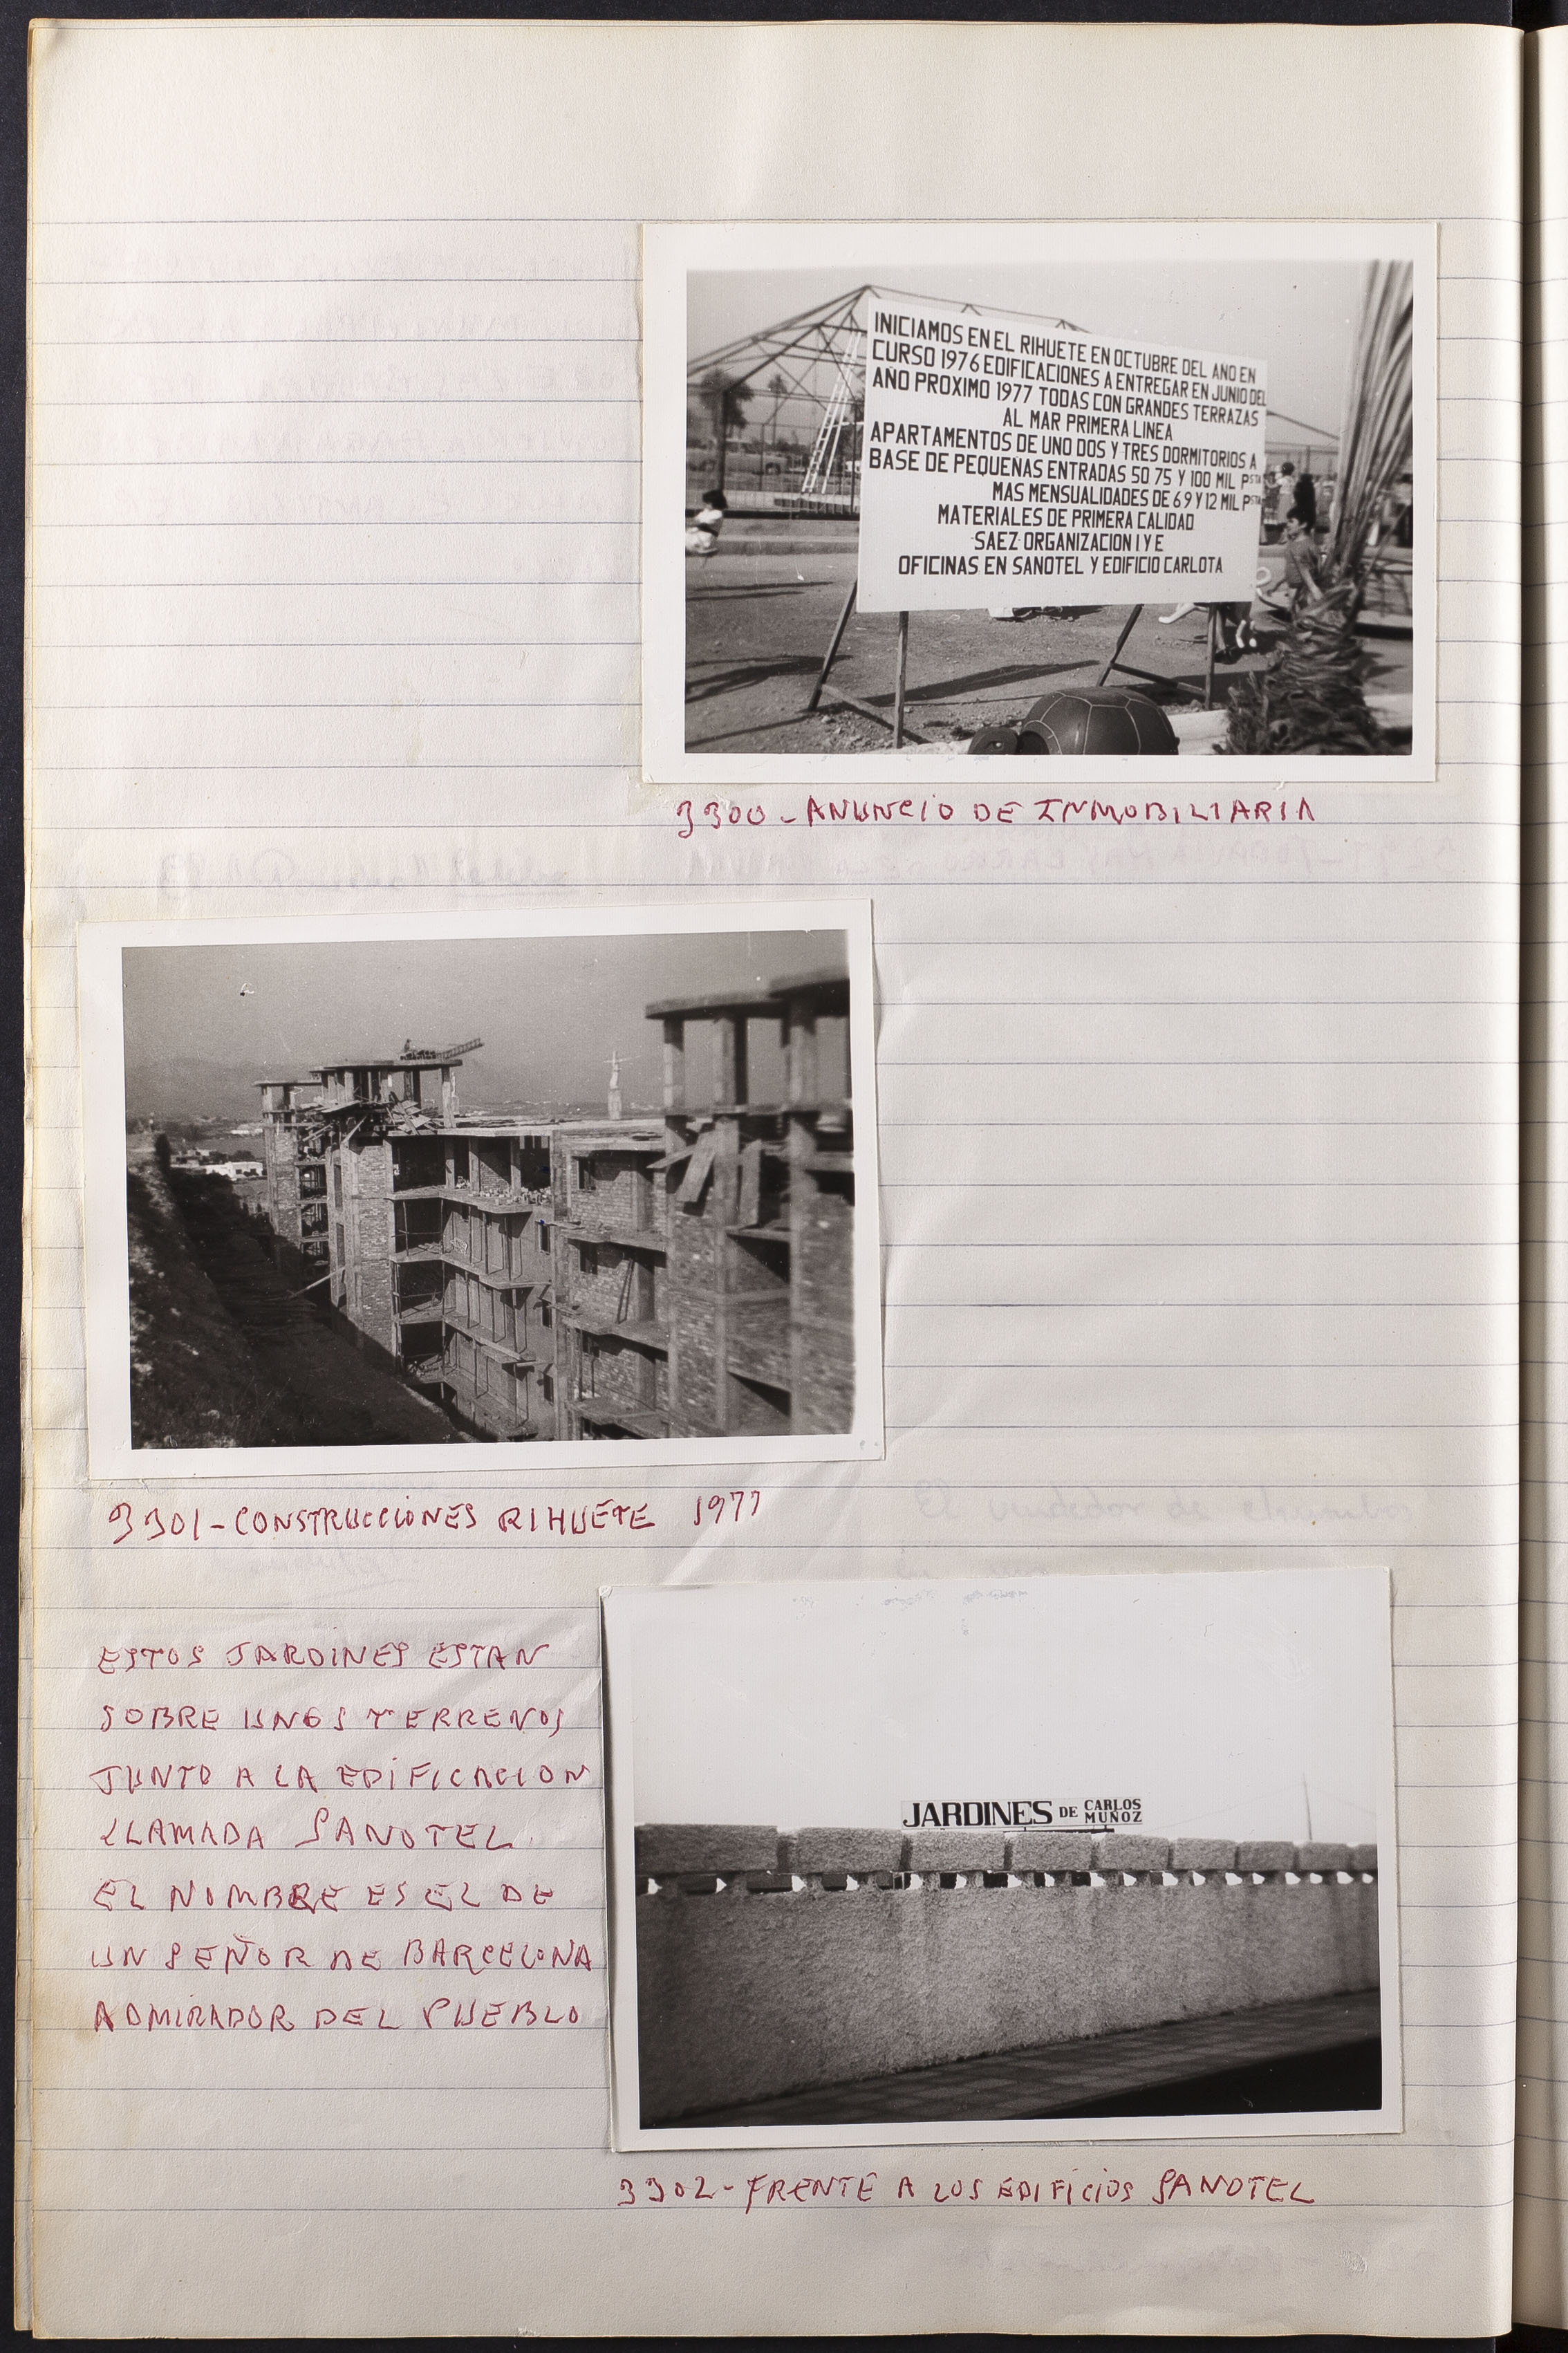 INICIAMOS EN EL RIHUETE EN OCTUBRE DEL AÑO EN
CURSO 1976 EDIFICACIONES A ENTREGAR EN JUNIO DEL
AÑO PROXIMO 1977 TODAS CON GRANDES TERRAZAS
AL MAR PRIMERA LINEA
APARTAMENTOS DE UNO DOS Y TRES DORMITORIOS A
BASE DE PEQUEÑAS ENTRADAS 50 75 Y 100 MIL Pstas
MAS MENSUALIDADES DE 6 9 Y 12 MIL Pstas
MATERIALES DE PRIMERA CALIDAD
SAEZ ORGANIZACION I Y E
OFICINAS EN SANOTEL Y EDIFICIO CARLOTA
3300 - ANUNCIO DE INMOBILIARIA
3301 - CONSTRUCCIONES RIHUETE 1977
ESTOS JARDINES ESTAN
SOBRE UNOS TERRENOS
JUNTO A LA EDIFICACION
LLAMADA SANOTEL.
EL NOMBRE ES EL DE
UN SEÑOR DE BARCELONA
ADMIRADOR DEL PUEBLO
JARDINES DE CARLOS MUÑOZ
3302 - FRENTE A LOS EDIFICIOS SANOTEL